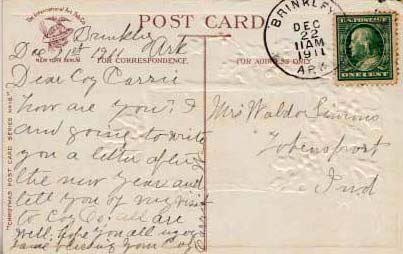 The International Art Pub. Co.
NEW YORK BERLIN
POST CARD
FOR CORRESPONDENCE
FOR ADDRESS ONLY
"CHRISTMAS POST CARD SERIES
BRINKLEY
DEC
22
11 AM
1911
ARK.
U.S. POSTAGE
ONE CENT
Brinkley
Dec 21st 1911 Ark
Dear Coz Carrie
How are you? I
and going to write
you a letter after
the new year and
tell you of my visit
to Coz all are
well, hope you all
Mrs Waldo
Ind